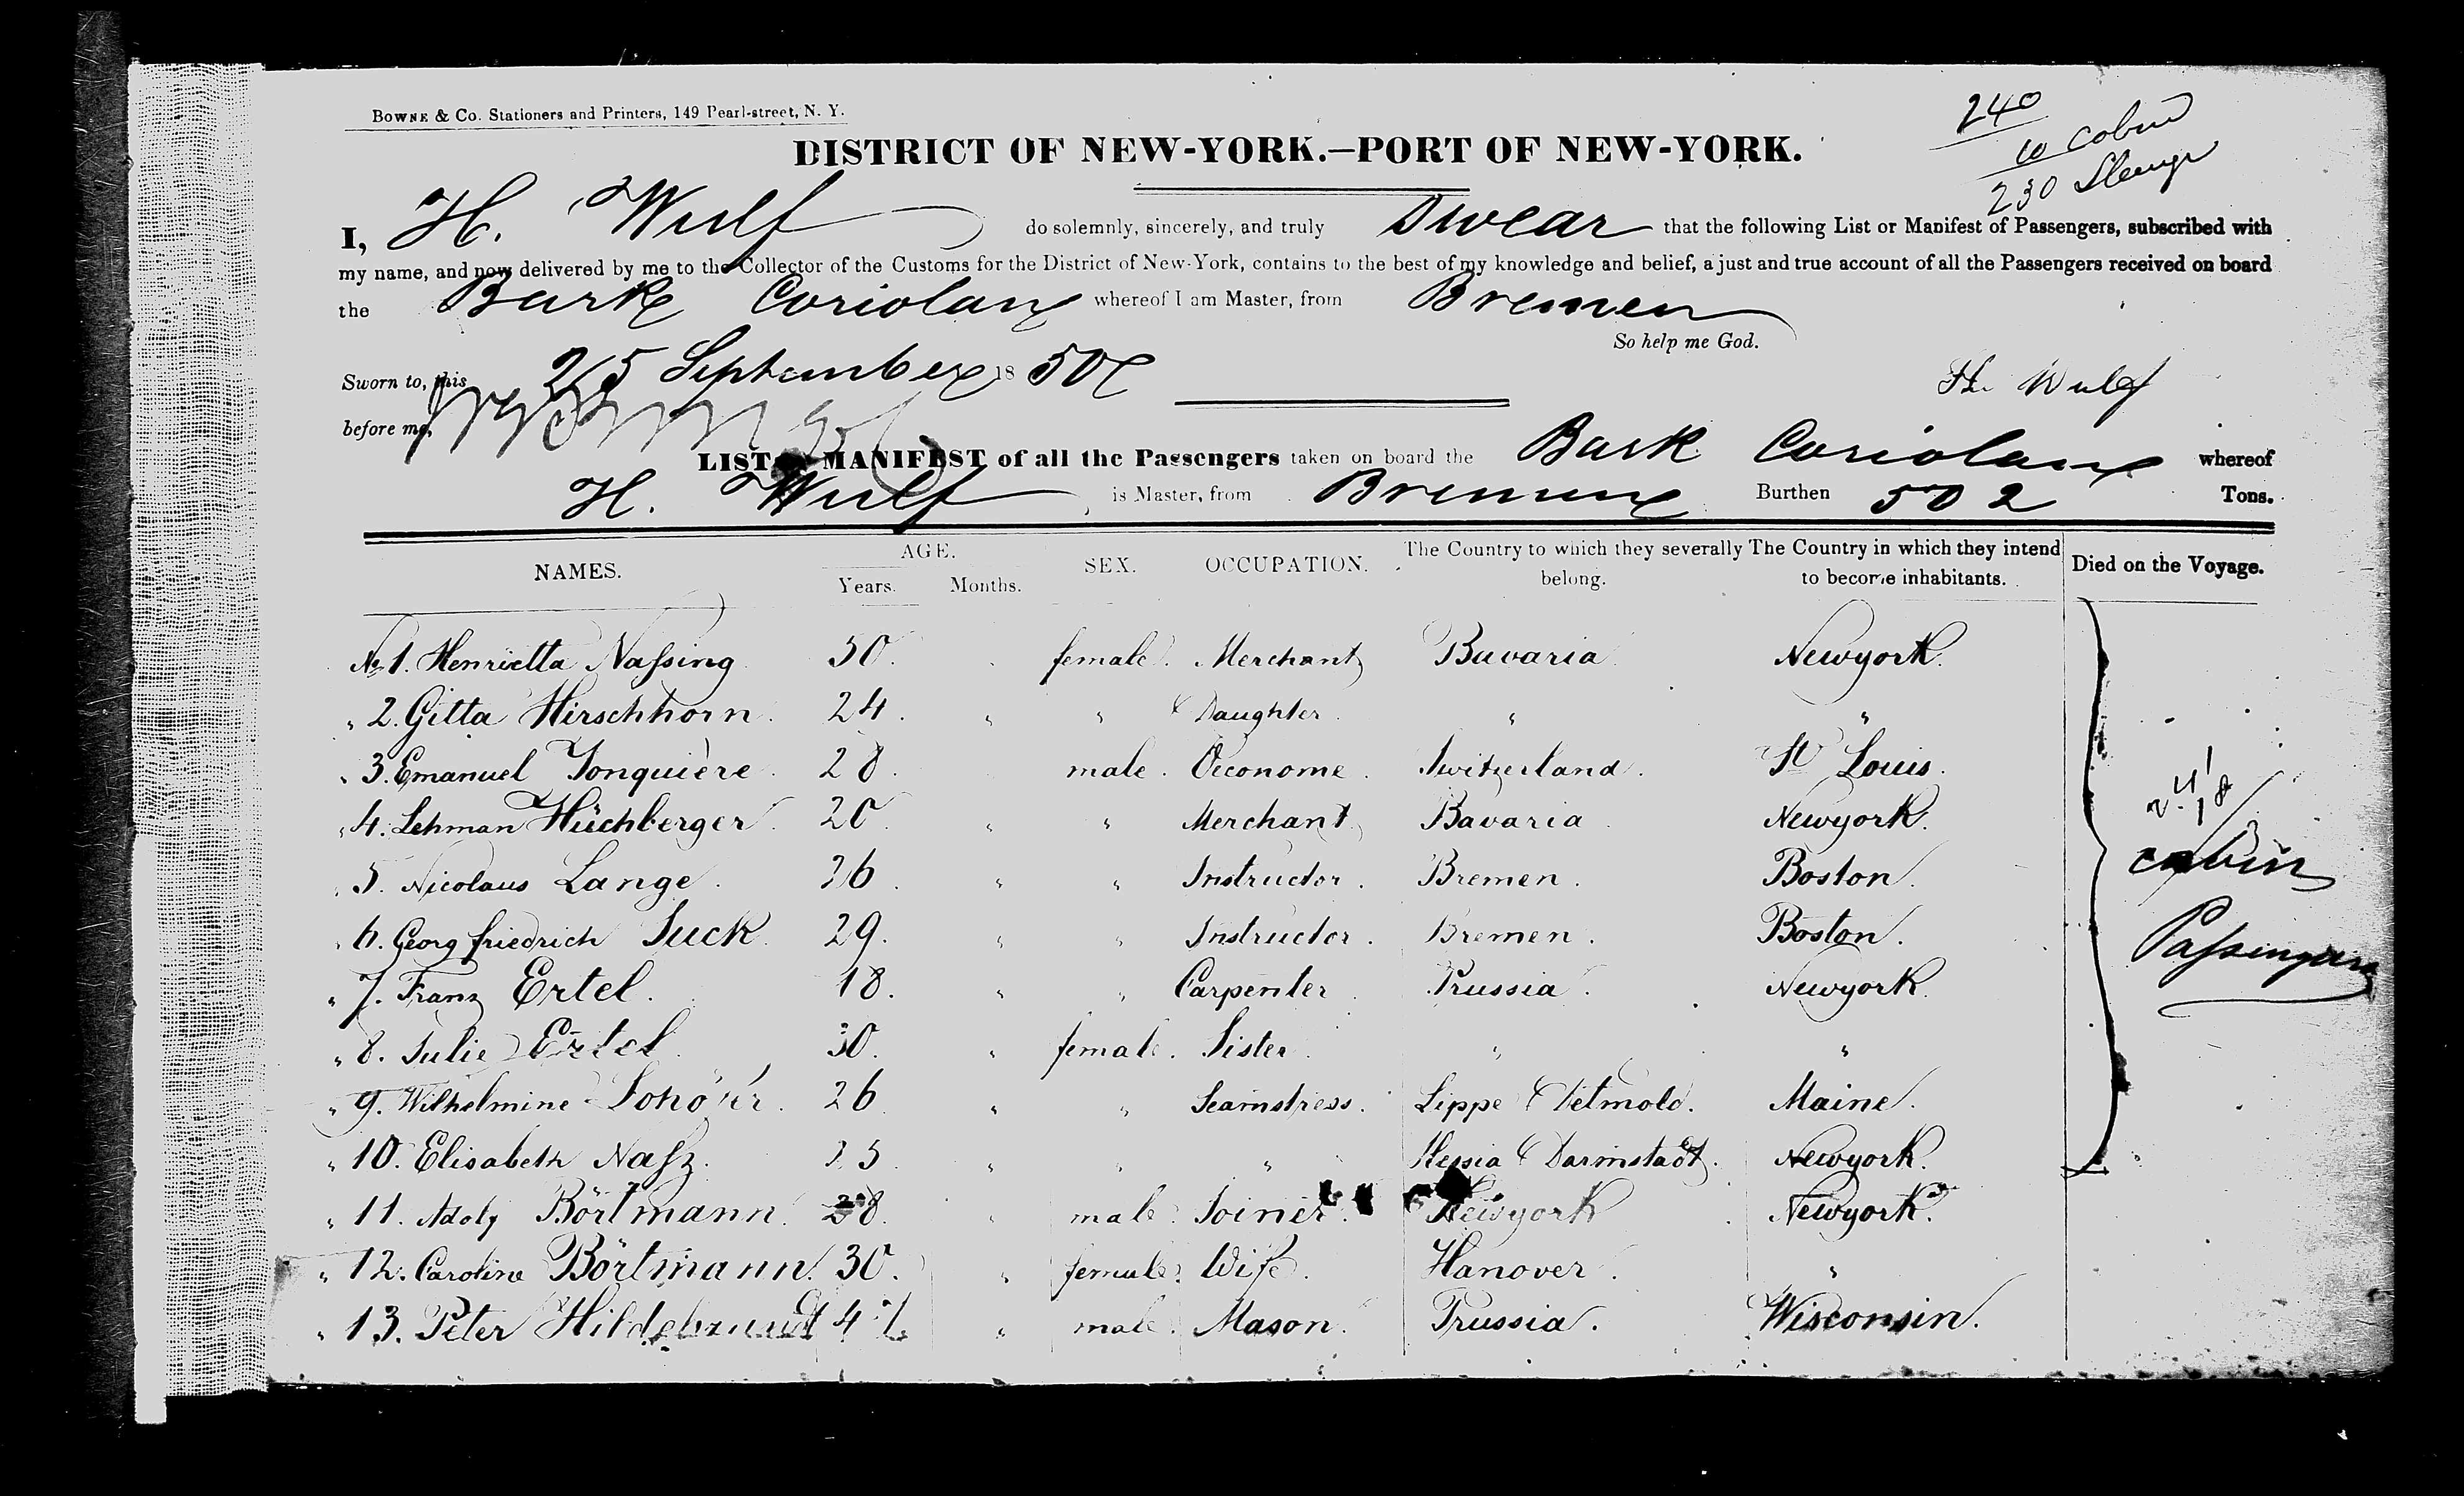 BOWNE & Co. Stationers and Printers, 149 Pearl-street, N. Y.
240
10 Cabin
230 Steerage
DISTRICT OF NEW-YORK.—PORT OF NEW-YORK.
I, H. Wulf do solemnly, sincerely, and truly Swear that the following List or Manifest of Passengers, subscribed with
my name, and now delivered by me to the Collector of the Customs for the District of New-York, contains to the best of my knowledge and belief, a just and true account of all the Passengers received on board
the Bark Coriolan whereof I am Master, from Bremen
So help me God.
Sworn to, this 25 September 1850
H. Wulf
before me,
LIST MANIFEST of all the Passengers taken on board the Bark Coriolan whereof
H. Wulf is Master, from Bremen Burthen 502 Tons.
NAMES. AGE. Years. Months. SEX. OCCUPATION. The Country to which they severally belong. The Country in which they intend to become inhabitants. Died on the Voyage.
No 1. Henrietta Naſsing 50. female. Merchant Bavaria Newyork.
" 2. Gitta Hirschhorn. 24. " " Daughter. " "
" 3. Emanuel Jonquière. 28. male. Oeconome. Switzerland. St Louis.
" 4. Lehman Hüchberger. 20. " " Merchant Bavaria Newyork.
" 5. Nicolaus Lange. 26. " " Instructor. Bremen. Boston.
" 6. Georg friedrich Suck. 29. " " Instructor. Bremen. Boston.
" 7. Franz Ertel. 18. " " Carpenter Prussia. Newyork.
" 8. Julie Ertel 30. " female. Sister. " "
" 9. Wilhelmine 26 " " Seamstress. Lippe Detmold. Maine.
" 10. Elisabeth Naſz. 25 " " " Hessia Darmstadt. Newyork.
" 11. Adolf Börtmann. 28. " male. Joiner. Newyork Newyork.
" 12. Caroline Börtmann. 30. " female. Wife. Hanover. "
" 13. Peter Hildebrandt " male. Mason. Prussia. Wisconsin.
cabin
Paſsengers